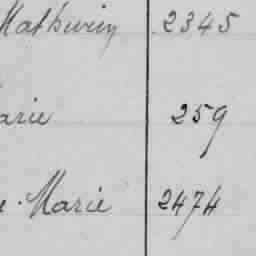 Mathurin 2345
arie 259
e. Marie 2474